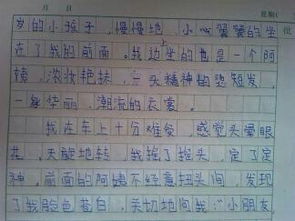 月 日 星期
岁的小孩子，慢慢地，小心翼翼的坐
在了我的前面。我边上坐的也是一个阿
姨，浓妆艳抹，一头精神的短发，
一身华丽、潮流的衣裳。
我在车上十分难受，感觉头晕眼
花，天旋地转。我摇了摇头，定了定
神。前面的阿姨不经意扭头间，发现
了我脸色苍白，关切地问我：“小朋友